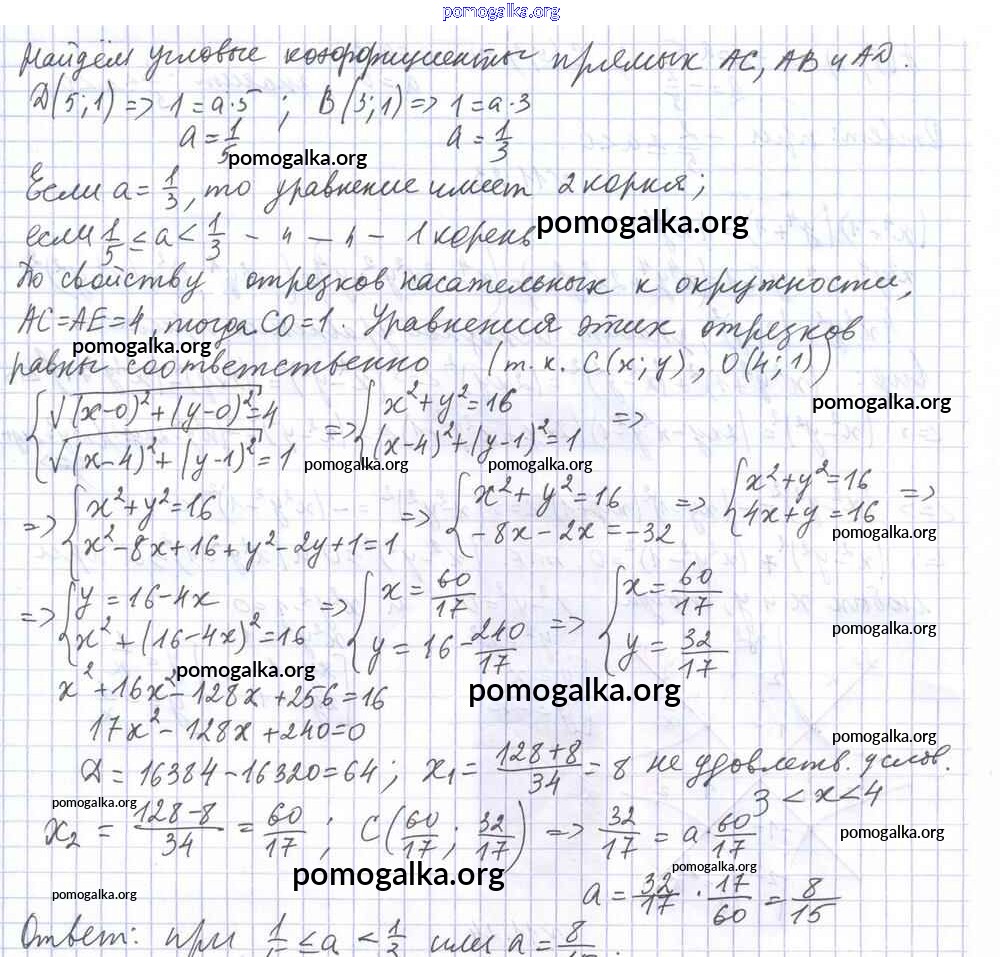 pomogalka.org
Найдём угловые коэффициенты прямых AC, AB и AD.
D(5;1) => 1 = a·5 ; B(3;1) => 1 = a·3
a = 1/5 a = 1/3
pomogalka.org
Если a = 1/3, то уравнение имеет 2 корня;
если 1/5 ≤ a < 1/3 - ч - ч - 1 корень
pomogalka.org
По свойству отрезков касательных к окружности,
AC = AE = 4, тогда CO = 1. Уравнения этих отрезков
pomogalka.org
равны соответственно (т.к. C(x;y), O(4;1))
{ √((x-0)²+(y-0)²) = 4 => { x²+y² = 16 => pomogalka.org
{ √((x-4)²+(y-1)²) = 1 pomogalka.org { (x-4)²+(y-1)² = 1 pomogalka.org
=> { x²+y² = 16 => { x²+y² = 16 => { x²+y² = 16 =>
{ x²-8x+16+y²-2y+1 = 1 { -8x-2x = -32 { 4x+y = 16
pomogalka.org
=> { y = 16-4x => { x = 60/17 => { x = 60/17
{ x²+(16-4x)² = 16 { y = 16 - 240/17 { y = 32/17
pomogalka.org
pomogalka.org
x²+16x²-128x+256 = 16
pomogalka.org
17x²-128x+240 = 0
pomogalka.org
D = 16384-16320 = 64; x₁ = (128+8)/34 = 8 не удовлетв. услов.
3 < x < 4
pomogalka.org
x₂ = (128-8)/34 = 60/17 ; C(60/17 ; 32/17) => 32/17 = a·60/17
pomogalka.org
pomogalka.org
pomogalka.org
pomogalka.org
a = 32/17 · 17/60 = 8/15
Ответ: при 1/ ≤ a < 1/3 или a = 8/ .